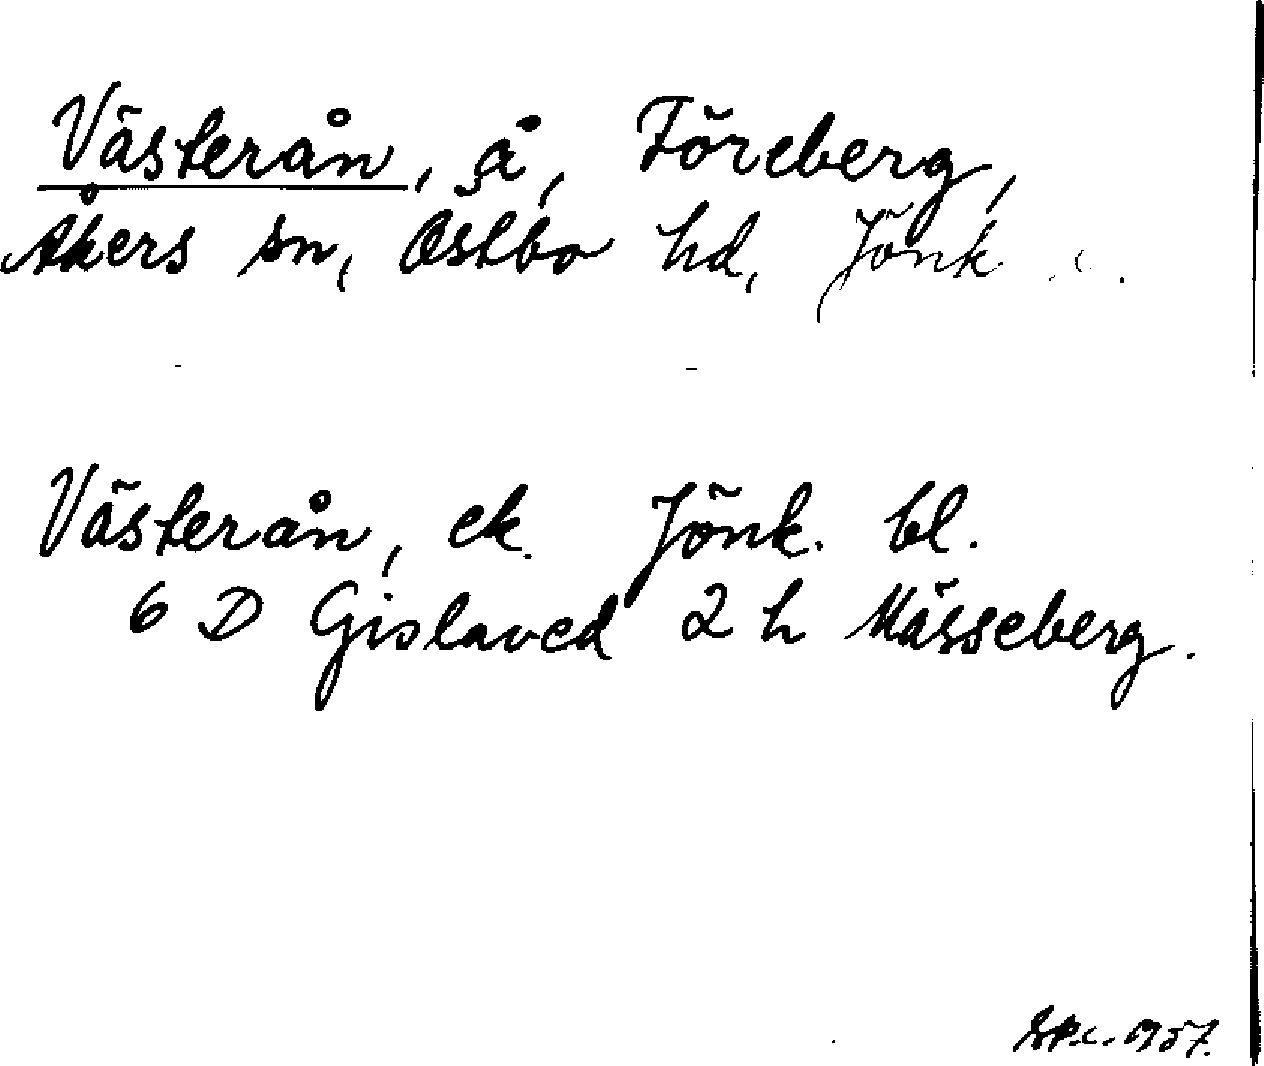 Västerån, å, Töreberg,
Åkers sn, Östbo hd, Jönk
Västerån, ek. Jönk. bl.
6 D Gislaved 2 h Mässeberg.
1957.